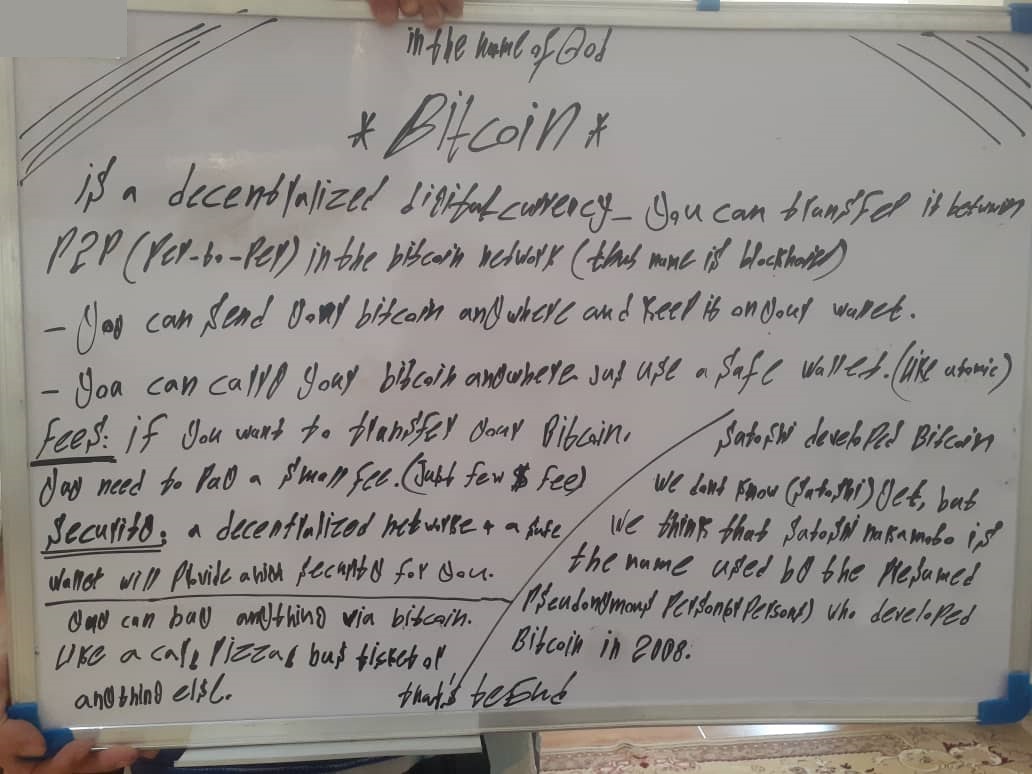 in the name of God
* Bitcoin *
is a decentralized digital currency_ You can transfer it between
P2P (Per-to-Per) in the bitcoin network (that name is
- You can send your bitcoin anywhere and keep it on your wallet.
- You can carry your bitcoin anywhere Jus use a safe wallet. (like atomic)
Fees: if you want to transfer your Bitcoin,
you need to pay a small fee. (Just few $ fee)
Security: a decentralized network + a safe
wallet will provide a high security for you.
you can buy anything via bitcoin.
Like a car, Pizza, bus ticket or
anything else.
Satoshi developed Bitcoin
we dont know (Satoshi) yet, but
we think that Satoshi nakamoto is
the name used by the presumed
Pseudonymous Person(or Persons) who developed
Bitcoin in 2008.
that's the End